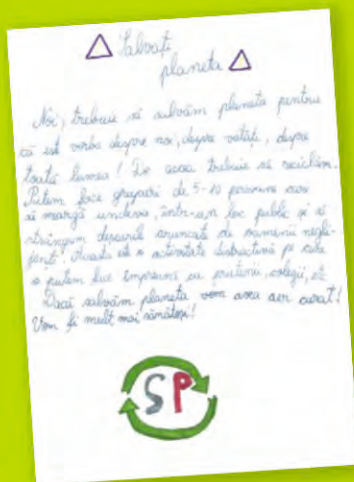 Salvați
planeta
Noi, trebuie să salvăm planeta pentru
că este vorba despre noi, despre vietăți, despre
toată lumea! De aceea trebuie să reciclăm.
Putem face grupări de 5-10 persoane care
să meargă undeva, într-un loc public și să
strângem deșeurile aruncate de oamenii negli-
jenți. Aceasta este o activitate distractivă pe care
o putem face împreună cu prietenii, colegii, etc.
Dacă salvăm planeta vom avea aer curat!
Vom fi mult mai sănătoși!
SP